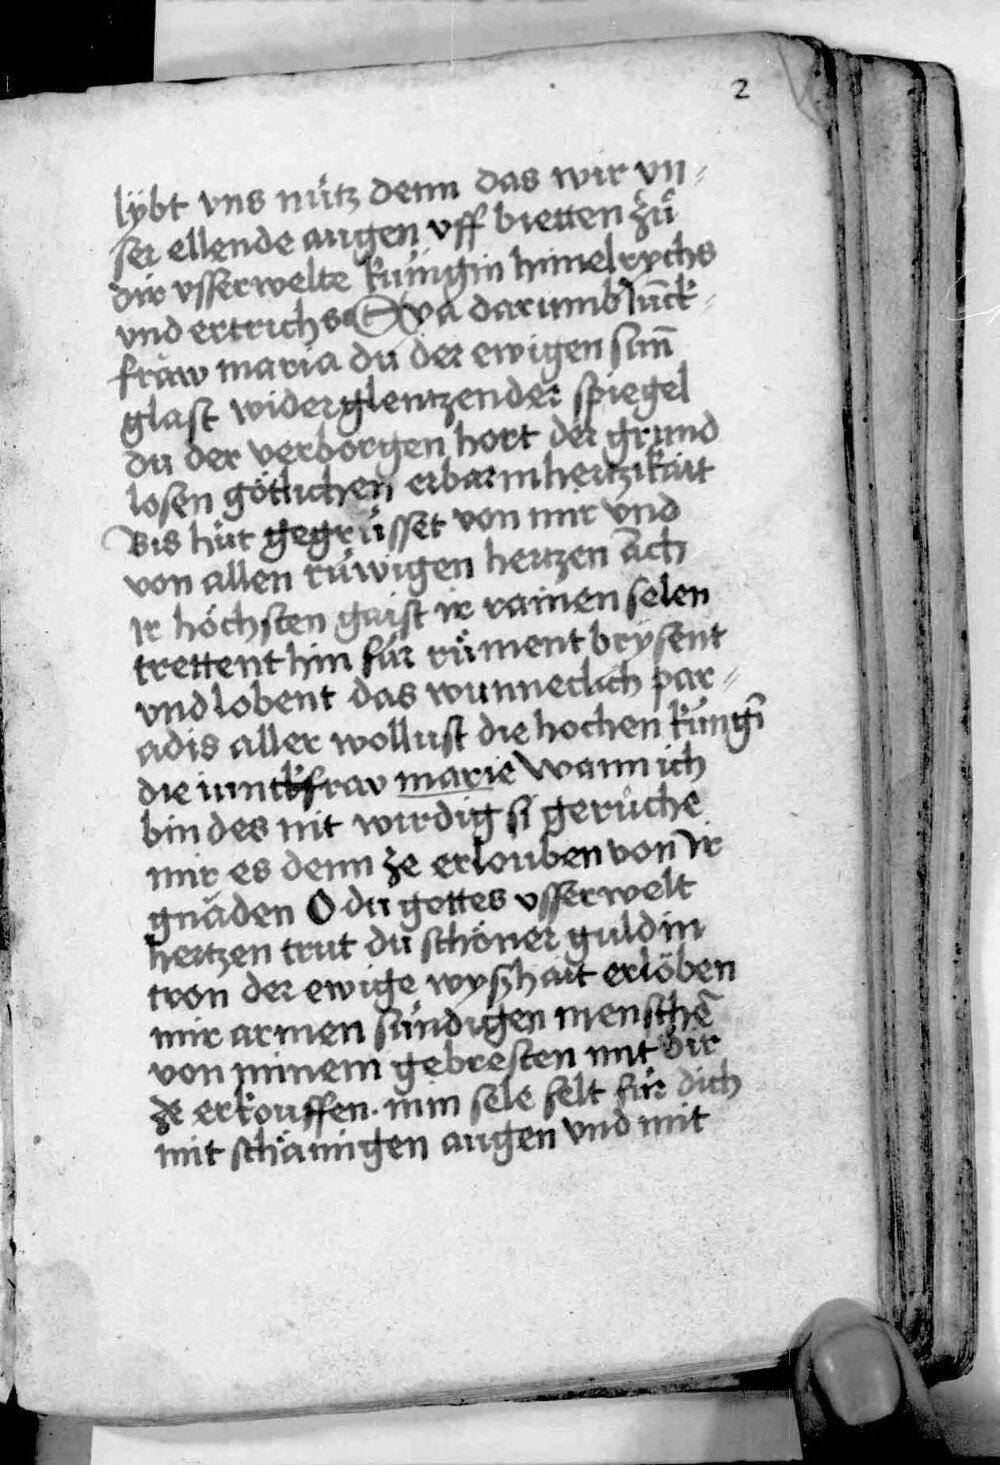 2
lÿbt vns nütz denn das wir vn⸗
ser ellende augen vff bietten zů
dir vsserwelte küngin himelrychs
vnd ertrichs Eya darumb Junck⸗
fraw maria du der ewigen sunn̄
glast widerglentzender spiegel
du der verborgen hort der grund
losen götlichen erbarmhertzikait
Bis hüt gegrüsset von mir vnd
von allen rüwigen hertzen ach
Ir höchsten gaist ir rainen selen
trettent hin für rüment brysent
vnd lobent das wunneclich par⸗
adis aller wollust die hochen küngī
die iunckfrav marie Wann ich
bin des nit wirdig si gerüche
mir es denn ze erlouben von Ir
gnäden O du gottes vsserwelt
hertzen trut du schöner guldin
tron der ewige wyszhait erlöben
mir armen sündigen menschē
von minem gebresten mit dir
ze erkouffen. min sele felt für dich
mit schämigen augen vnd mit